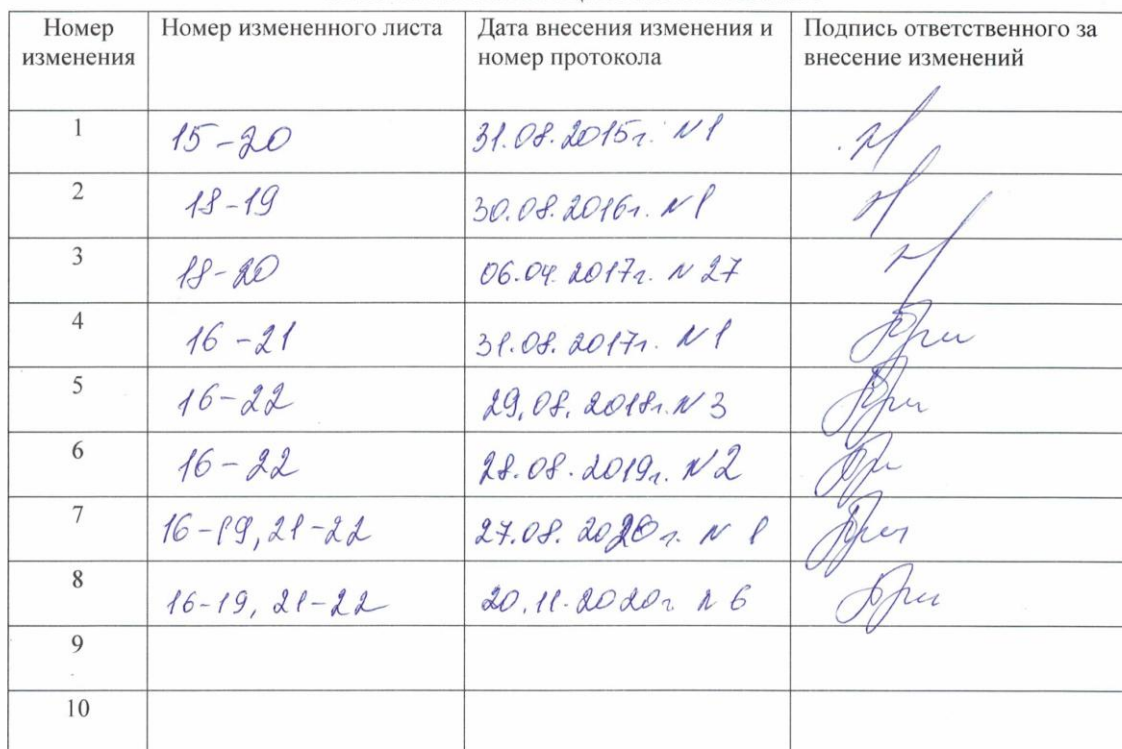 Номер изменения Номер измененного листа Дата внесения изменения и номер протокола Подпись ответственного за внесение изменений
1 15-20 31.08.2015г. N1
2 18-19 30.08.2016г. N1
3 18-20 06.04.2017г. N 27
4 16-21 31.08.2017г. N1
5 16-22 29.08.2018г. N 3
6 16-22 28.08.2019г. N2
7 16-19, 21-22 27.08.2020г. N 1
8 16-19, 21-22 20.11.2020г. N 6
9
10